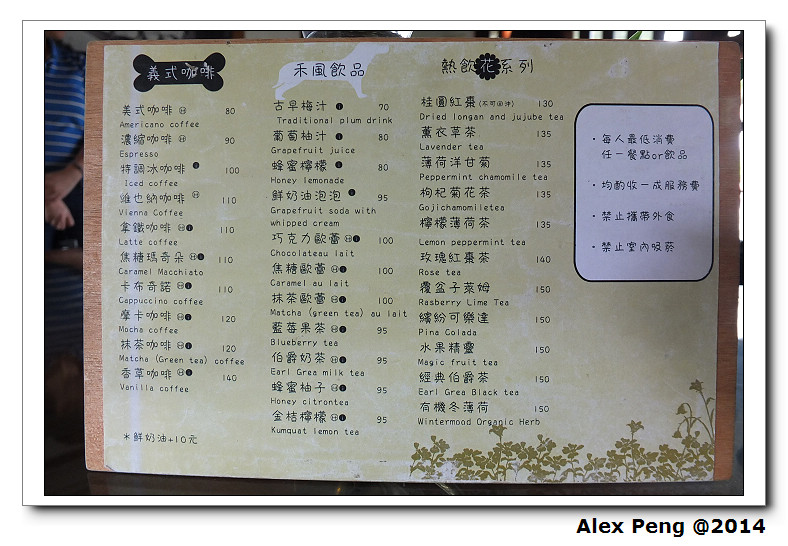 義式咖啡
美式咖啡 Ⓗ 80
Americano coffee
濃縮咖啡 Ⓗ 90
Espresso
特調冰咖啡 ❶ 100
Iced coffee
維也納咖啡 Ⓗ 110
Vienna Coffee
拿鐵咖啡 Ⓗ❶ 110
Latte coffee
焦糖瑪奇朵 Ⓗ❶ 110
Caramel Macchiato
卡布奇諾 Ⓗ❶ 110
Cappuccino coffee
摩卡咖啡 Ⓗ❶ 120
Mocha coffee
抹茶咖啡 Ⓗ❶ 120
Matcha (Green tea) coffee
香草咖啡 Ⓗ❶ 140
Vanilla coffee
*鮮奶油+10元
禾風飲品
古早梅汁 ❶ 70
Traditional plum drink
葡萄柚汁 ❶ 80
Grapefruit juice
蜂蜜檸檬 ❶ 80
Honey lemonade
鮮奶油泡泡 ❶ 95
Grapefruit soda with
whipped cream
巧克力歐蕾 Ⓗ❶ 100
Chocolateau lait
焦糖歐蕾 Ⓗ❶ 100
Caramel au lait
抹茶歐蕾 Ⓗ❶ 100
Matcha (green tea) au lait
藍莓果茶 Ⓗ❶ 95
Blueberry tea
伯爵奶茶 Ⓗ❶ 95
Earl Grea milk tea
蜂蜜柚子 Ⓗ❶ 95
Honey citrontea
金桔檸檬 Ⓗ❶ 95
Kumquat lemon tea
熱飲花系列
桂圓紅棗(不可回沖) 130
Dried longan and jujube tea
薰衣草茶 135
Lavender tea
薄荷洋甘菊 135
Peppermint chamomile tea
枸杞菊花茶 135
Gojichamomiletea
檸檬薄荷茶 135
Lemon peppermint tea
玫瑰紅棗茶 140
Rose tea
覆盆子萊姆 150
Rasberry Lime Tea
繽紛可樂達 150
Pina Colada
水果精靈 150
Magic fruit tea
經典伯爵茶 150
Earl Grea Black tea
有機冬薄荷 150
Wintermood Organic Herb
·每人最低消費
任一餐點or飲品
·均酌收一成服務費
·禁止攜帶外食
·禁止室內吸菸
Alex Peng @2014